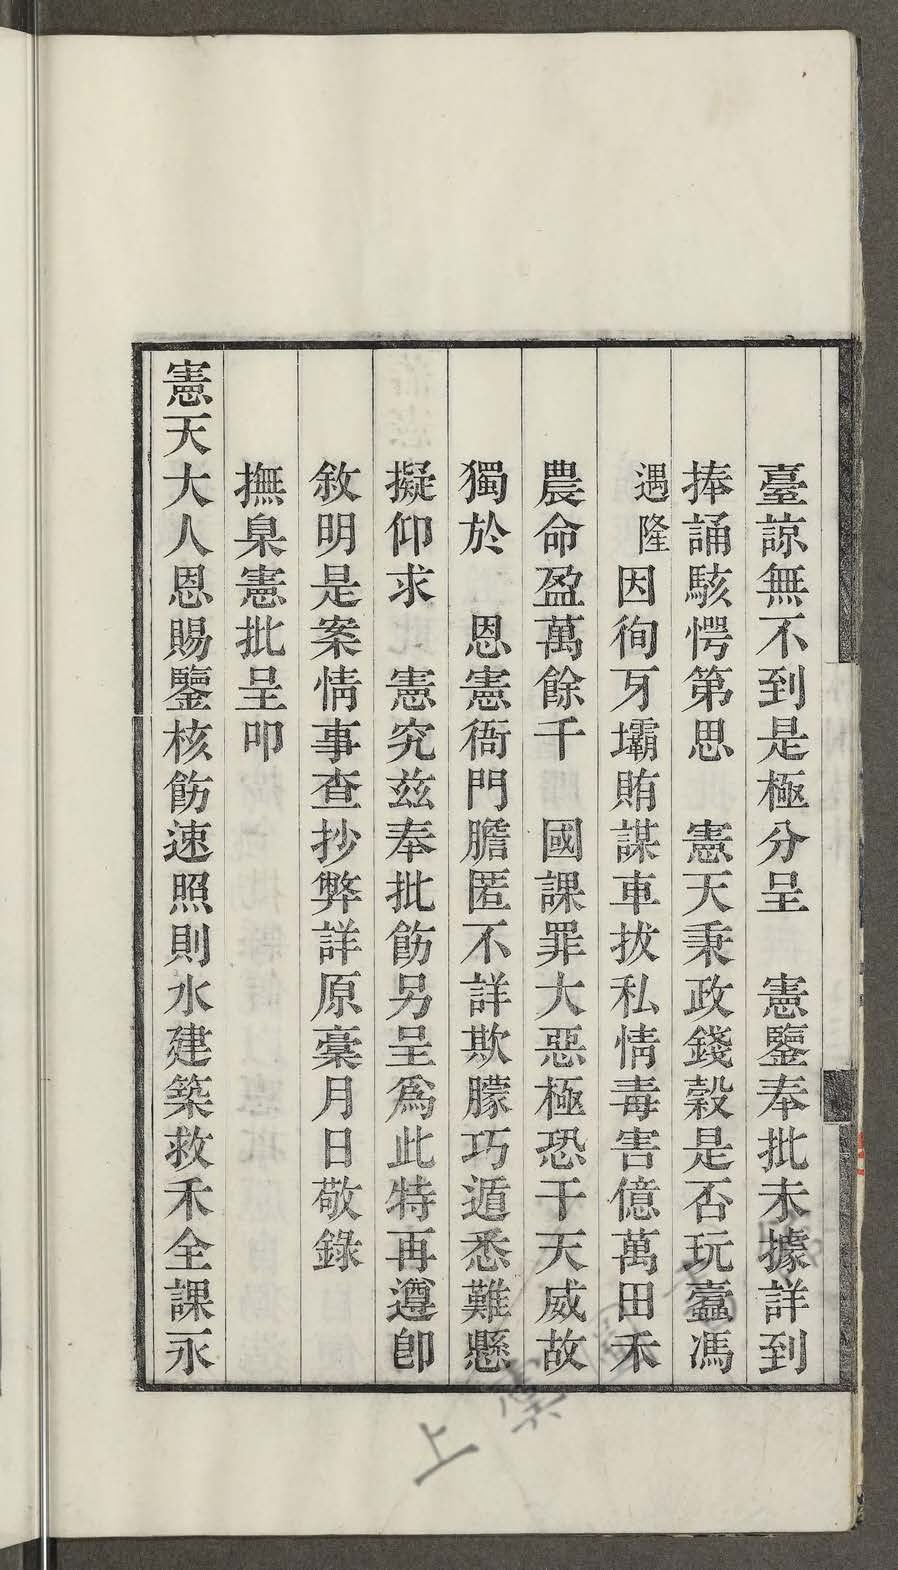 臺諒無不到是極分呈　憲鑒奉批未據詳到
捧誦駭愕第思　憲天秉政錢穀是否玩蠹馮
遇隆因徇牙壩賄謀車拔私情毒害億萬田禾
農命盈萬餘千　國課罪大惡極恐干天威故
獨於　恩憲衙門膽匿不詳欺朦巧遁悉難懸
擬仰求　憲究茲奉批飭另呈爲此特再遵卽
敘明是案情事查抄弊詳原稾月日敬錄
撫臬憲批呈叩
憲天大人恩賜鑒核飭速照則水建築救禾全課永
上虞圖書館